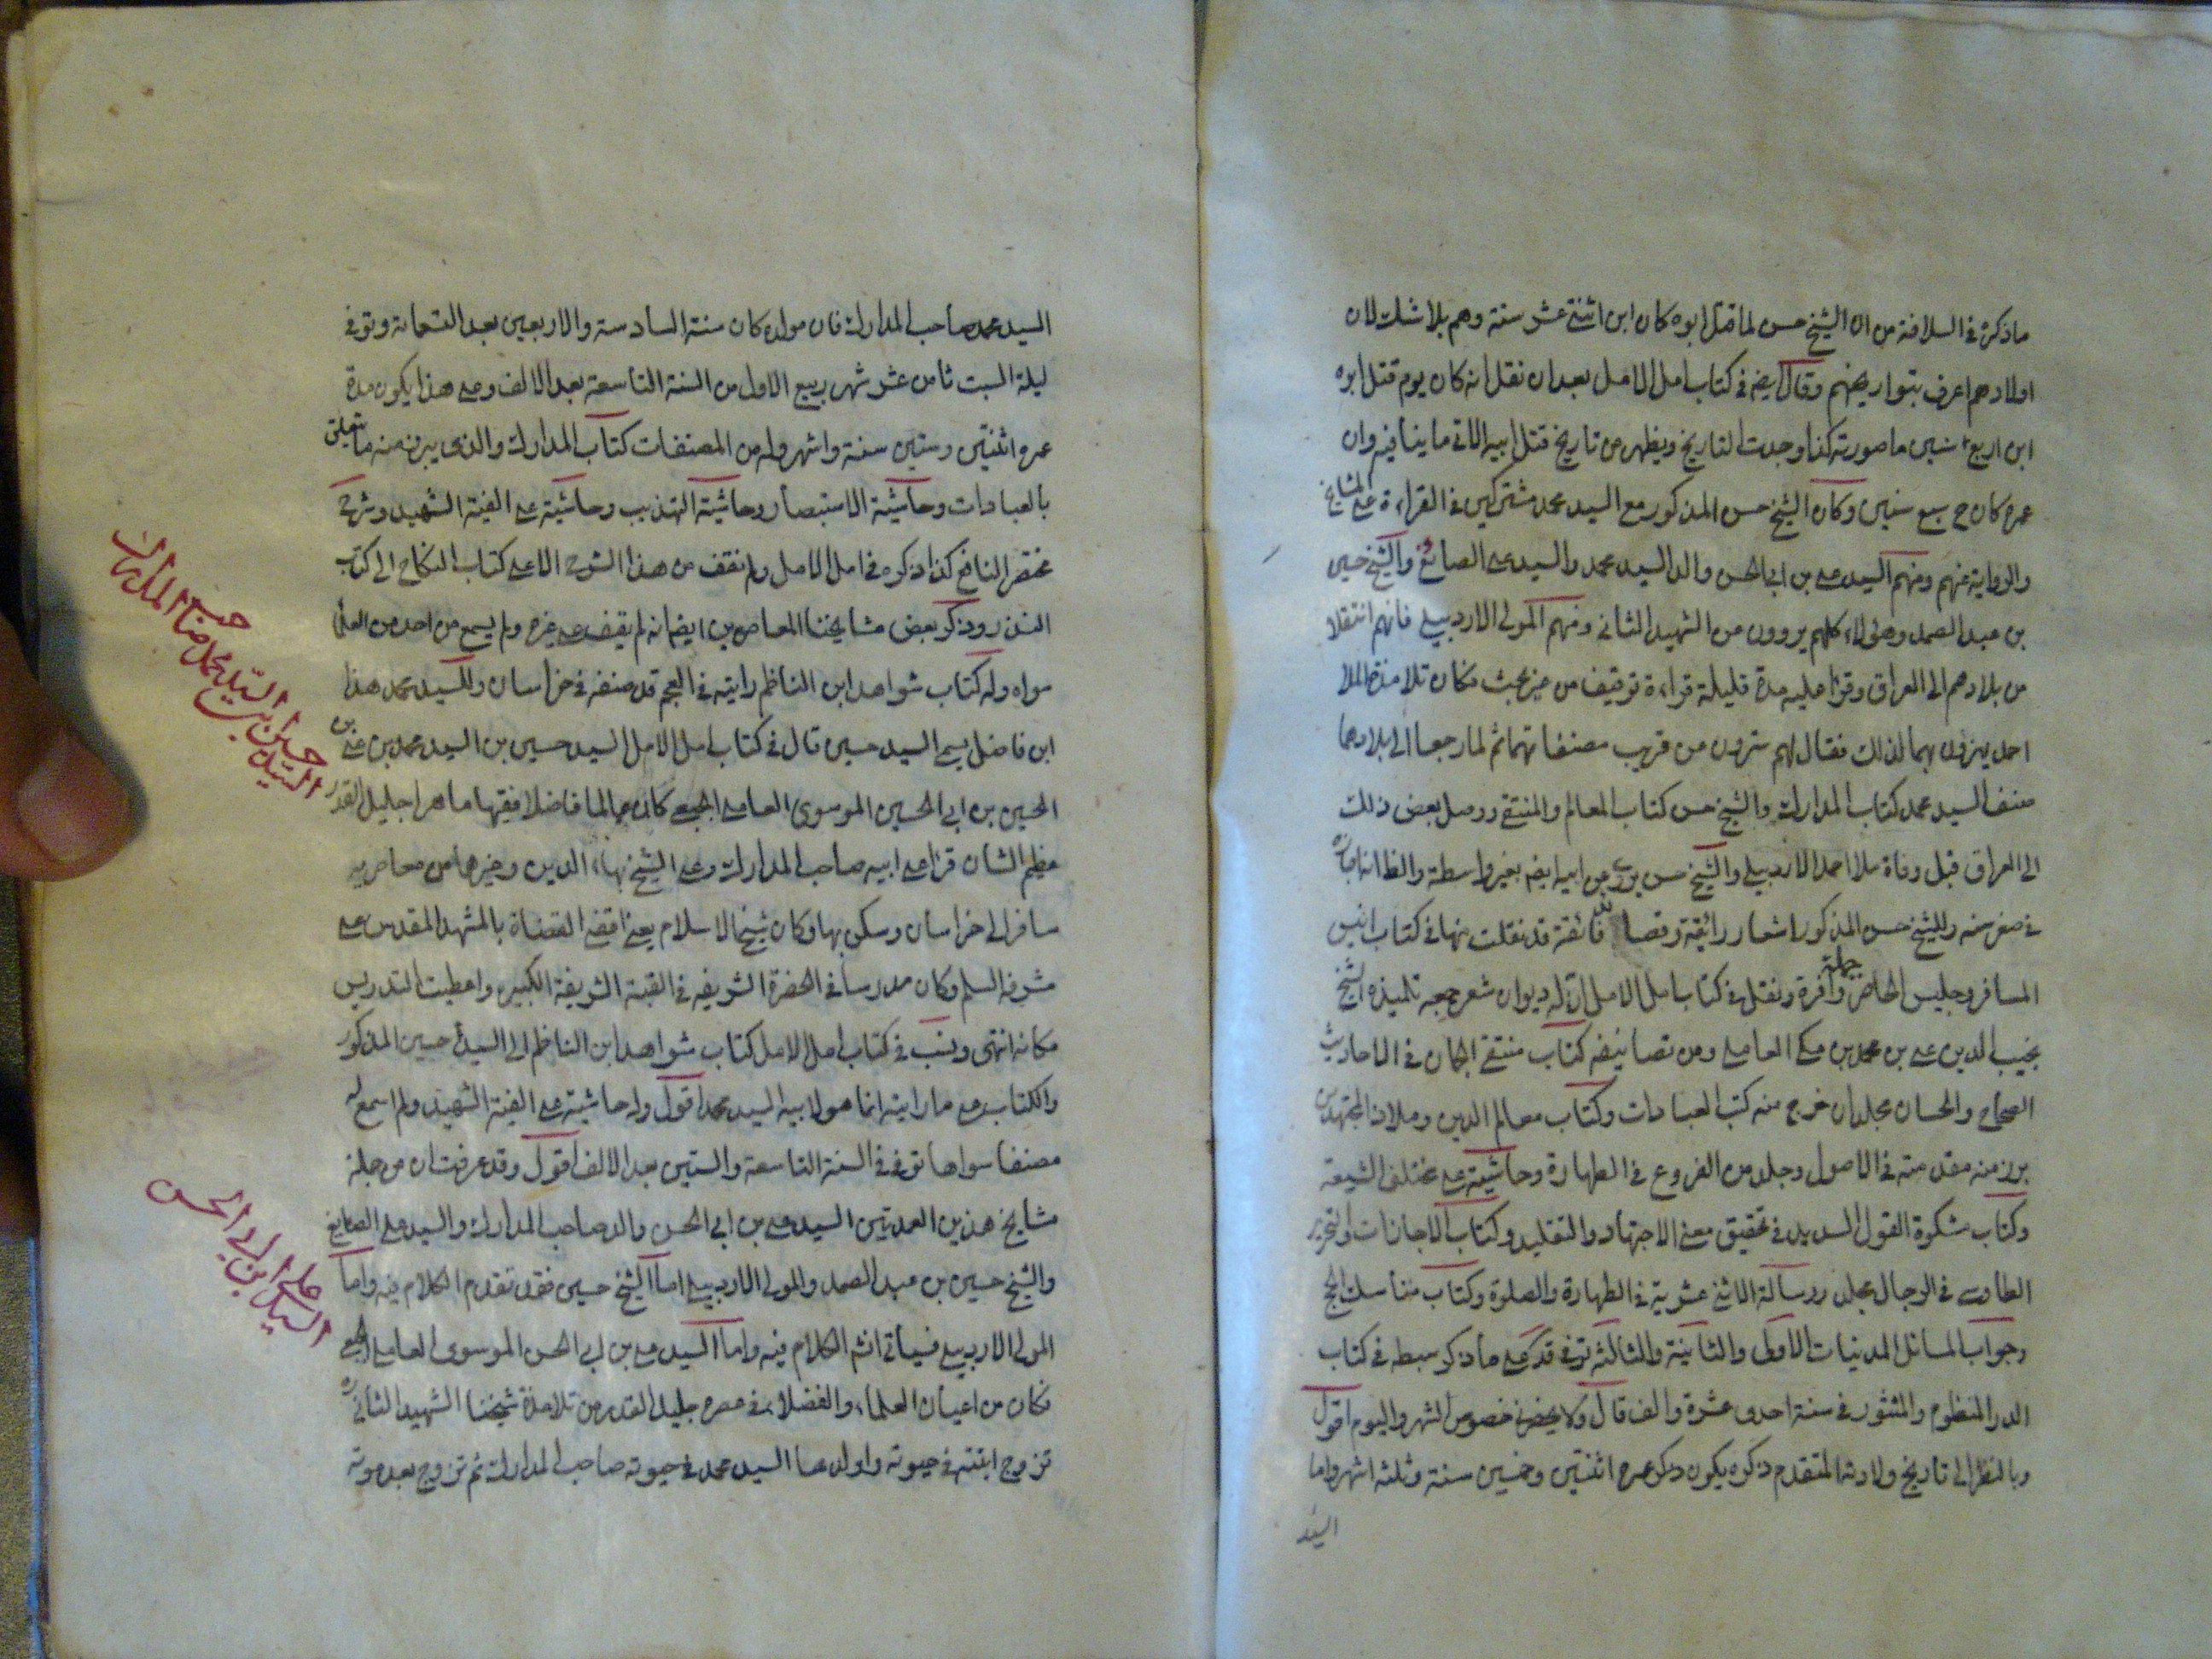 ماذكره في السلافة من ان الشيخ حسن لما قتل ابوه كان ابن اثنتي عشر سنة وهم بلا شك لان
اولادهم اعرف بتواريخهم وقال ايضه في كتاب امل الامل بعد ان نقل انه كان يوم قتل ابوه
ابن اربع سنين ما صورته كذا وجدت التاريخ ويظهر من تاريخ قتل ابيه الاتي ما ينافيه وان
عمره كان ح سبع سنين وكان الشيخ حسن المذكور مع السيد محمد مشتركين في القراءة على المشايخ
والرواية عنهم ومنهم السيد على بن ابي الحسن والد السيد محمد والسيد على الصائغ والشيخ حسين
بن عبد الصمد وهؤلاء كلهم يروون من الشهيد الثاني ومنهم المولى الاردبيلي فانهم انتقلا
من بلادهم الى العراق وقرءا عليه مدة قليلة قراءة توقيف من غير بحث فكان تلامذة الملا
احمد يهزؤن بهما لذلك فقال لهم سترون من قريب مصنفاتهما ثم لما رجعا الى بلادهما
صنف السيد محمد كتاب المدارك والشيخ حسن كتاب المعالم والمنتقى ووصل بعض ذلك
الى العراق قبل وفاة ملا احمد الاردبيلي والشيخ حسن يروى عن ابيه ايضه بغير واسطة والظ انه اجازه
في صغر سنه وللشيخ حسن المذكور اشعار رائقة وقصائد فائقة قد نقلت منها في كتاب انيس
المسافر وجليس الحاضر جملة وافرة ونقل في كتاب امل الامل ان له ديوان شعر جمعه تلميذه الشيخ
نجيب الدين على بن محمد بن مكي العاملي ومن تصانيفه كتاب منتقى الجمان في الاحاديث
الصحاح والحسان مجلدان خرج منه كتب العبادات وكتاب معالم الدين وملاذ المجتهدين
برز منه مقدمته في الاصول وجلد من الفروع في الطهارة وحاشية على مختلف الشيعة
وكتاب مشكوة القول السديد في تحقيق معنى الاجتهاد والتقليد وكتاب الاجازات والتحرير
الطاوسي في الرجال مجلد ورسالة الاثنى عشرية في الطهارة والصلوة وكتاب مناسك الحج
وجواب المسائل المدنيات الاولى والثانية والثالثة توفي قدس على ما ذكر سبطه في كتاب
الدر المنظوم والمنثور في سنة احدى عشرة والف قال ولا يحضرني خصوص الشهر واليوم اقول
وبالنظر الى تاريخ ولادته المتقدم ذكره يكون ذكر عمره اثنتين وخمسين سنة وثلثه اشهر واما
السيد
السيد محمد صاحب المدارك فان مولده كان سنة السادسة والاربعين بعد التسعمائة وتوفي
ليلة السبت ثامن عشر شهر ربيع الاول من السنة التاسعة بعد الالف وعلى هذا يكون مدة
عمره اثنتين وستين سنة واشهر وله من المصنفات كتاب المدارك والذى برز منه ما يتعلق
بالعبادات وحاشية الاستبصار وحاشية التهذيب وحاشية على الفية الشهيد وشرح
مختصر النافع كذا ذكره في امل الامل ولم نقف من هذا الشرح الا على كتاب النكاح الى كتاب
النذر وذكر بعض مشايخنا المعاصرين ايضه انه لم يقف على غيره ولم يسمع من احد من العلماء
سواه وله كتاب شواهد ابن الناظم رايته في العجم قد صنفه في خراسان وللسيد محمد هذا
ابن فاضل يسمى السيد حسين قال في كتاب امل الامل السيد حسين بن السيد محمد بن على بن
الحسين بن ابي الحسين الموسوى العاملى الجبعى كان عالما فاضلا فقيها ماهرا جليل القدر
عظيم الشان قرء على ابيه صاحب المدارك وعلى الشيخ بهاء الدين وغيرهما من معاصريه
سافر الى خراسان وسكن بها وكان شيخ الاسلام يعنى اقضى القضاة بالمشهد المقدس على
مشرفه السلم وكان مدرسا في الحضرة الشريفه في القبة الشريفة الكبيره واعطيت التدريس
مكانه انتهى ونسب في كتاب امل الامل كتاب شواهد ابن الناظم الى السيد حسين المذكور
والكتاب على ما رايته انما هو لابيه السيد محمد اقول وله حاشية على الفية الشهيد ولم اسمع له
مصنفا سواها توفي في السنة التاسعة والستين بعد الالف اقول وقد عرفت ان من جملة
مشايخ هذين العمدتين السيد على بن ابي الحسن والد صاحب المدارك والسيد على الصايغ
والشيخ حسين بن عبد الصمد والمولى الاردبيلى اما الشيخ حسين فقد تقدم الكلام فيه واما
المولى الاردبيلى فسيأتي انشم الكلام فيه واما السيد على بن ابي الحسن الموسوى العاملى الجبعى
فكان من اعيان العلماء والفضلاء في عصره جليل القدر من تلامذة شيخنا الشهيد الثاني ره
تزوج ابنته في حيوته واولدها السيد محمد في حيوته صاحب المدارك ثم تزوج بعد موته
السيد حسين ابن السيد محمد صاحب المدارك
السيد على ابن ابي الحسن